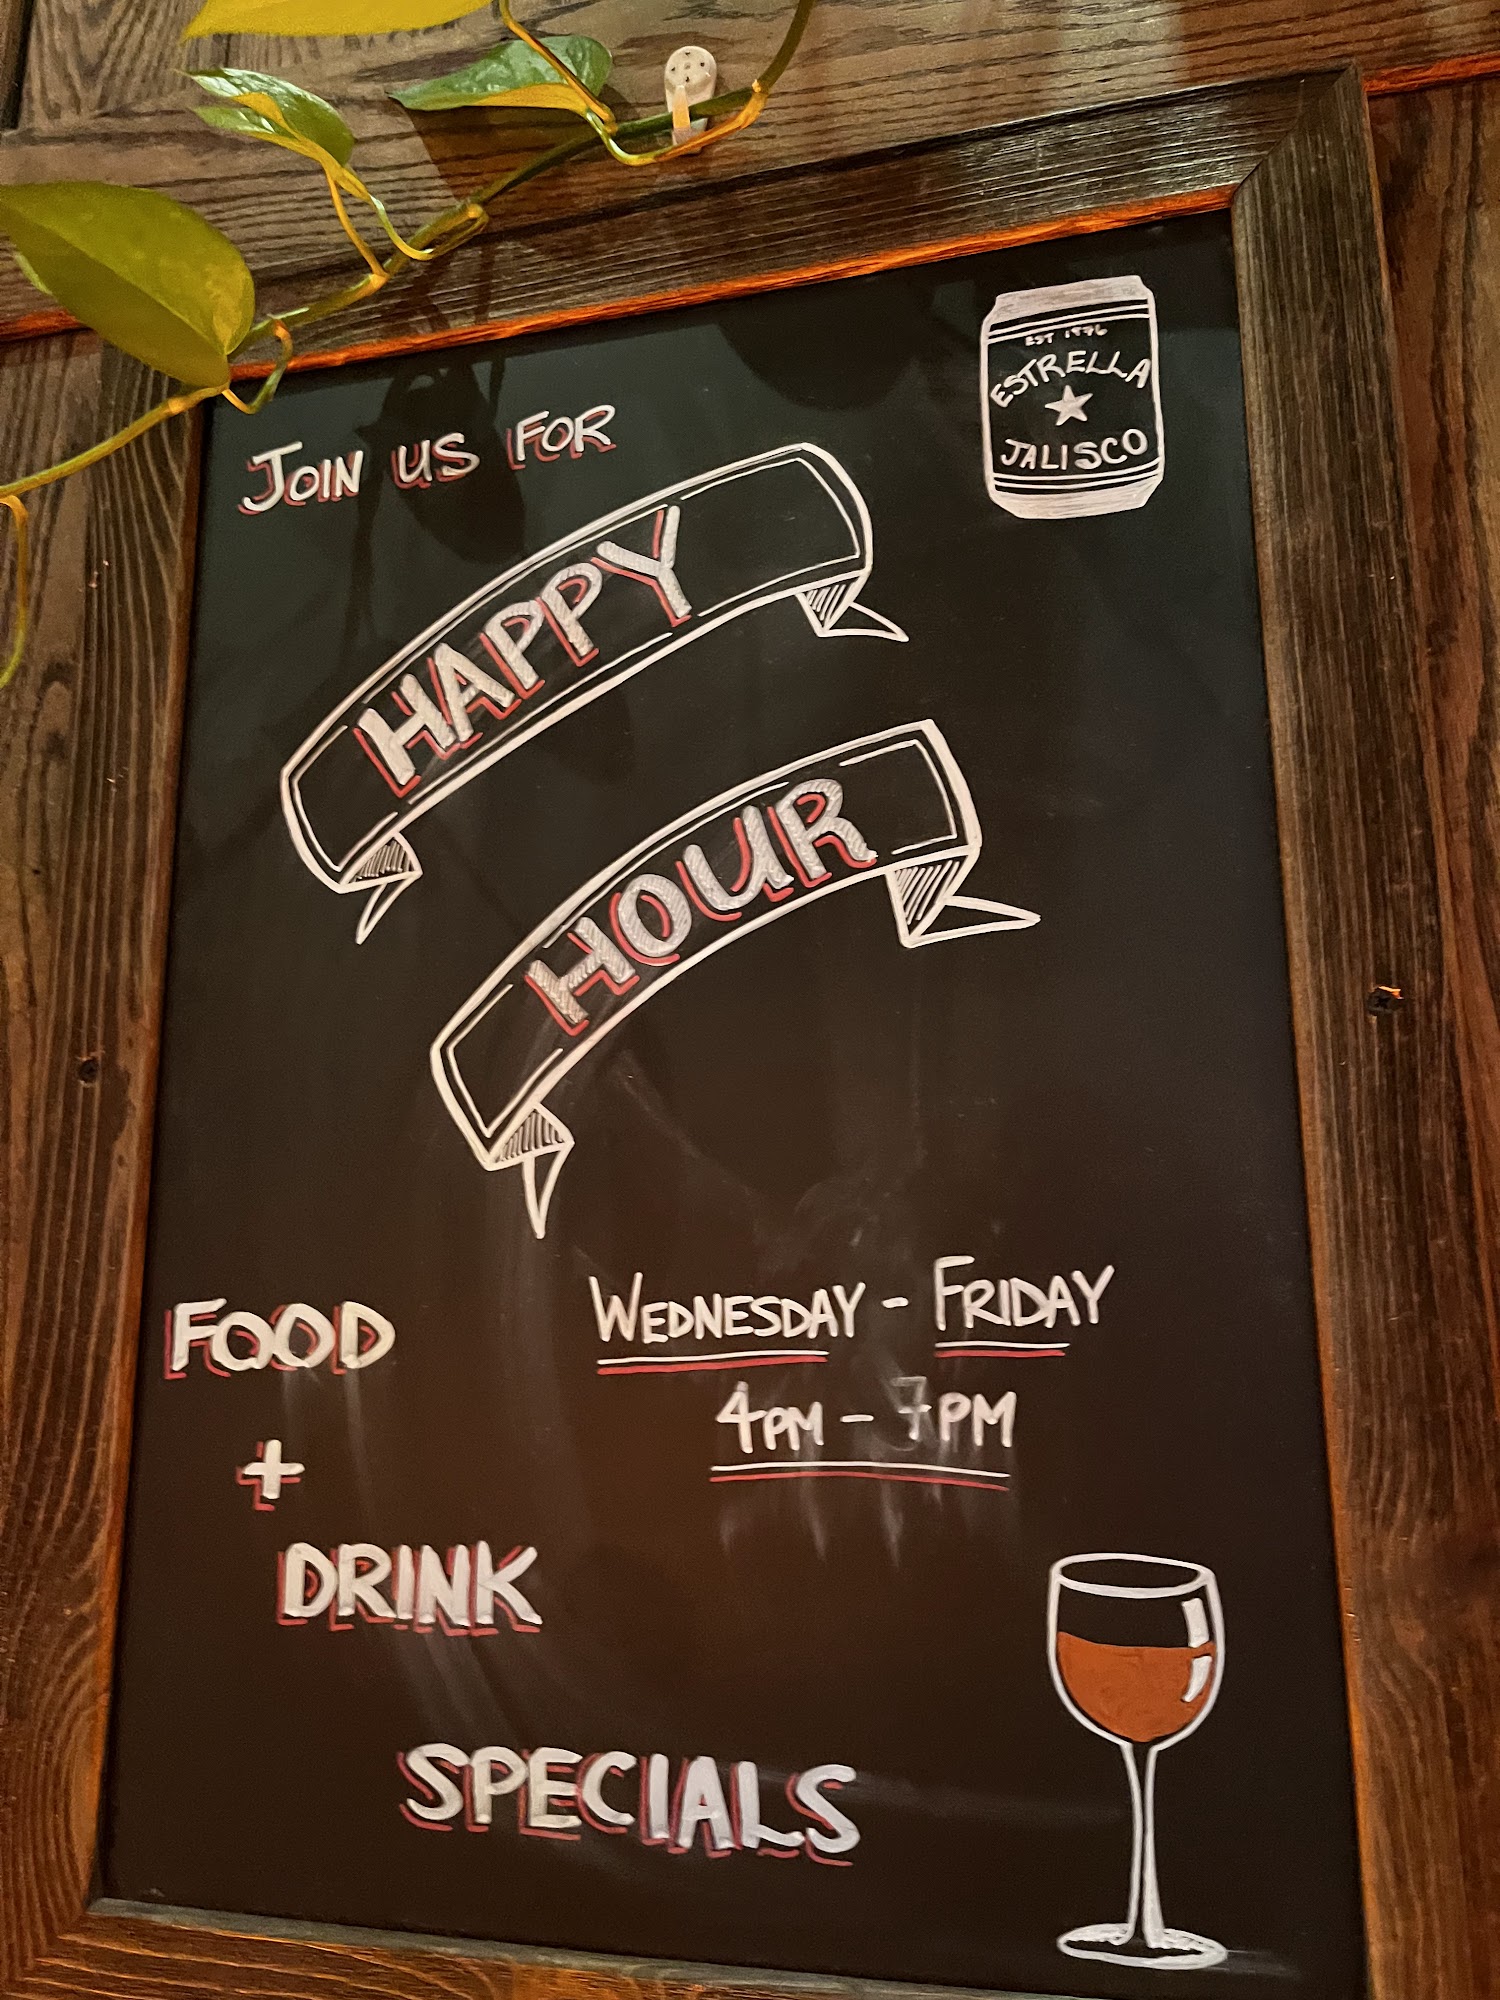 JOIN US FOR
HAPPY
HOUR
EST 1976
ESTRELLA
JALISCO
WEDNESDAY - FRIDAY
4PM - 7PM
FOOD
+
DRINK
SPECIALS